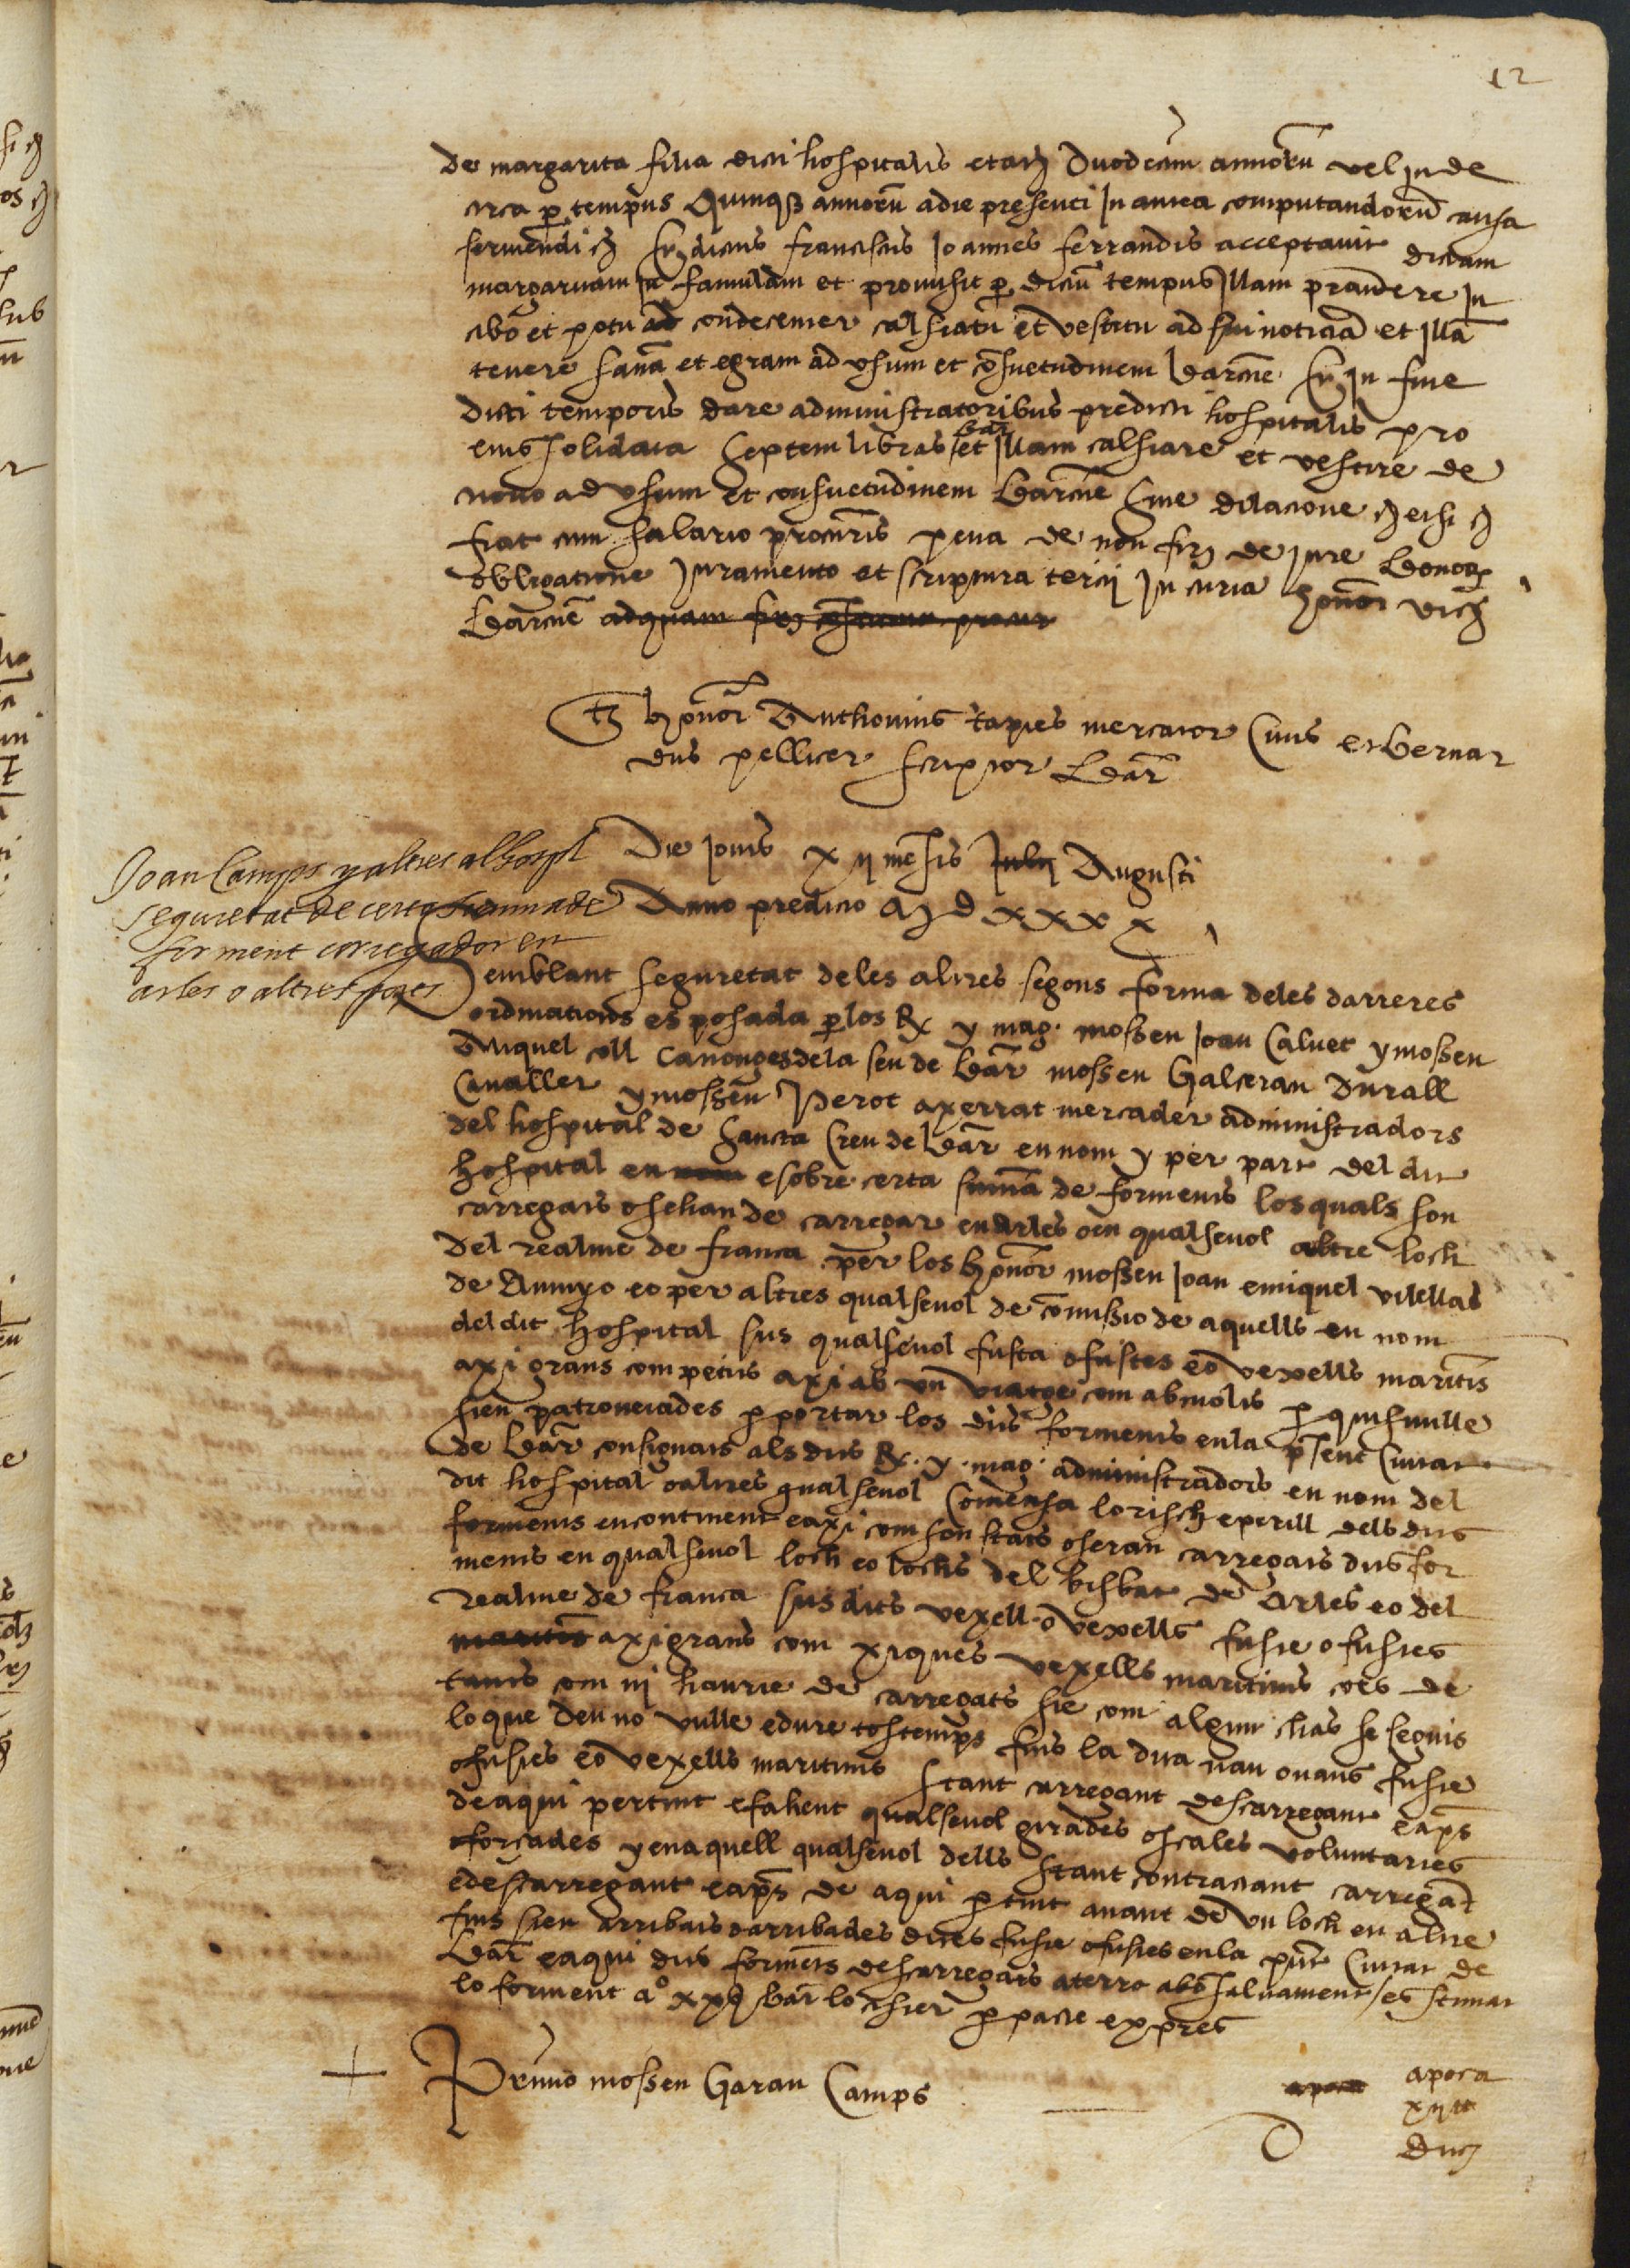 12
de margarita filia dicti hospitalis etatꝫ duodecim annorũ vel inde
circa ꝑ tempus quinqꝫ annorũ adie presenti In antea computandorũ causa
serviendi ꝫ Et dictus franciscus Joannes ferrandis acceptavit dictam
margaritam In famulam et promisit ꝑ dictũ tempus Illam prandere In
cibo et potu condecenter calsiatu et vestitu ad sui noticiã et Illã
tenere sanã et egram ad usum et cõsuetudinem barcñe Et In fine
dicti temporis dare administratoribus predicti hospitalis pro
eius solidata septem libras bar et Illam calsiare et vestire de
novo ad usum et consuetudinem barcñe sine dilacione ꝫ etsi ꝫ
fiat cum salario procuris pena de non fir de jure bonorꝫ
obligatione Juramento et scriptura tercii In curia honor vicꝫ
barcñe adquam
Tꝫ honor Anthonius tapies mercator Civis et bernar
dus pellicer scriptor bar
Joan Camps y altres al hospl
seguretat de certa summa de
forment carregador en
arles o altres parts
Die Jovis xii mensis Julii Augusti
Anno predicto M D xxxx
Semblant seguretat deles altres segons forma deles darreres
ordinations es posada ꝑ los R. y mag. mossen Joan Calvet y mossen
Miquel coll Canonges dela seu de bar mossen Galceran durall
Cavaller y mossen Perot axerrat mercader administradors
del hospital de sancta Creu de bar en nom y per part del dit
hospital en nom e sobre certa sumã de forments los quals son
carregats o se han de carregar en Arles o en qualsevol altre loch
del realme de franca per los honor mossen Joan e miquel vilellas
de Aunyo eo per altres qualsevol de comissio de aquells en nom
del dit hospital sus qualsevol fusta o fustes eo vexells maritis
axi grans com petits axi ab un viatge com ab molts ꝑ quisvulle
sien patronejades ꝑ portar los dits forments en la pñt Ciutat
de bar consignats als dits R. y mag. administradors en nom del
dit hospital o altres qualsevol Comensa lo risch e perill dels dits
forments encontinent e axi com son stats o seran carregats dits for
ments en qualsevol loch eo lochs del bisbat de Arles eo del
realme de franca sus dits vexell o vexells fuste o fustes
maritims axi grans com xiques vexells maritims cets de
tants com ni haurie de carregats sie com algun chas se seguis
lo que deu no vulle e dure tostemps fins la dita nau o naus fuste
o fustes eo vexells maritims stant carregant descarregant e aps
de aqui pertint e fahent qualsevol girades o scales voluntaries
o forcades y en aquell qualsevol dells stant contractant carregãt
e descarregant e aps de aqui ꝑtint anant de un loch en altre
fins sien arribats o arribades dites fuste o fustes en la pñt Ciutat de
bar e aqui dits forments descarregats a terra ab bõ salvament / es stimat
lo forment a xx bar lo ꝑ pacte expres
+ Primo mossen Garau Camps
apoca apoca
xii
duc